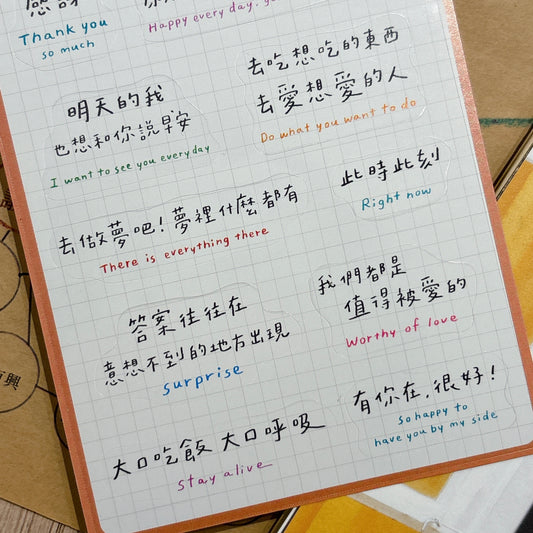 Thank you
so much
Happy every day,
去吃想吃的東西
去愛想愛的人
Do what you want to do
明天的我
也想和你說早安
I want to see you everyday
此時此刻
Right now
去做夢吧！夢裡什麼都有
There is everything there
我們都是
值得被愛的
Worthy of love
答案往往在
意想不到的地方出現
surprise
有你在，很好！
So happy to
have you by my side
大口吃飯 大口呼吸
Stay alive